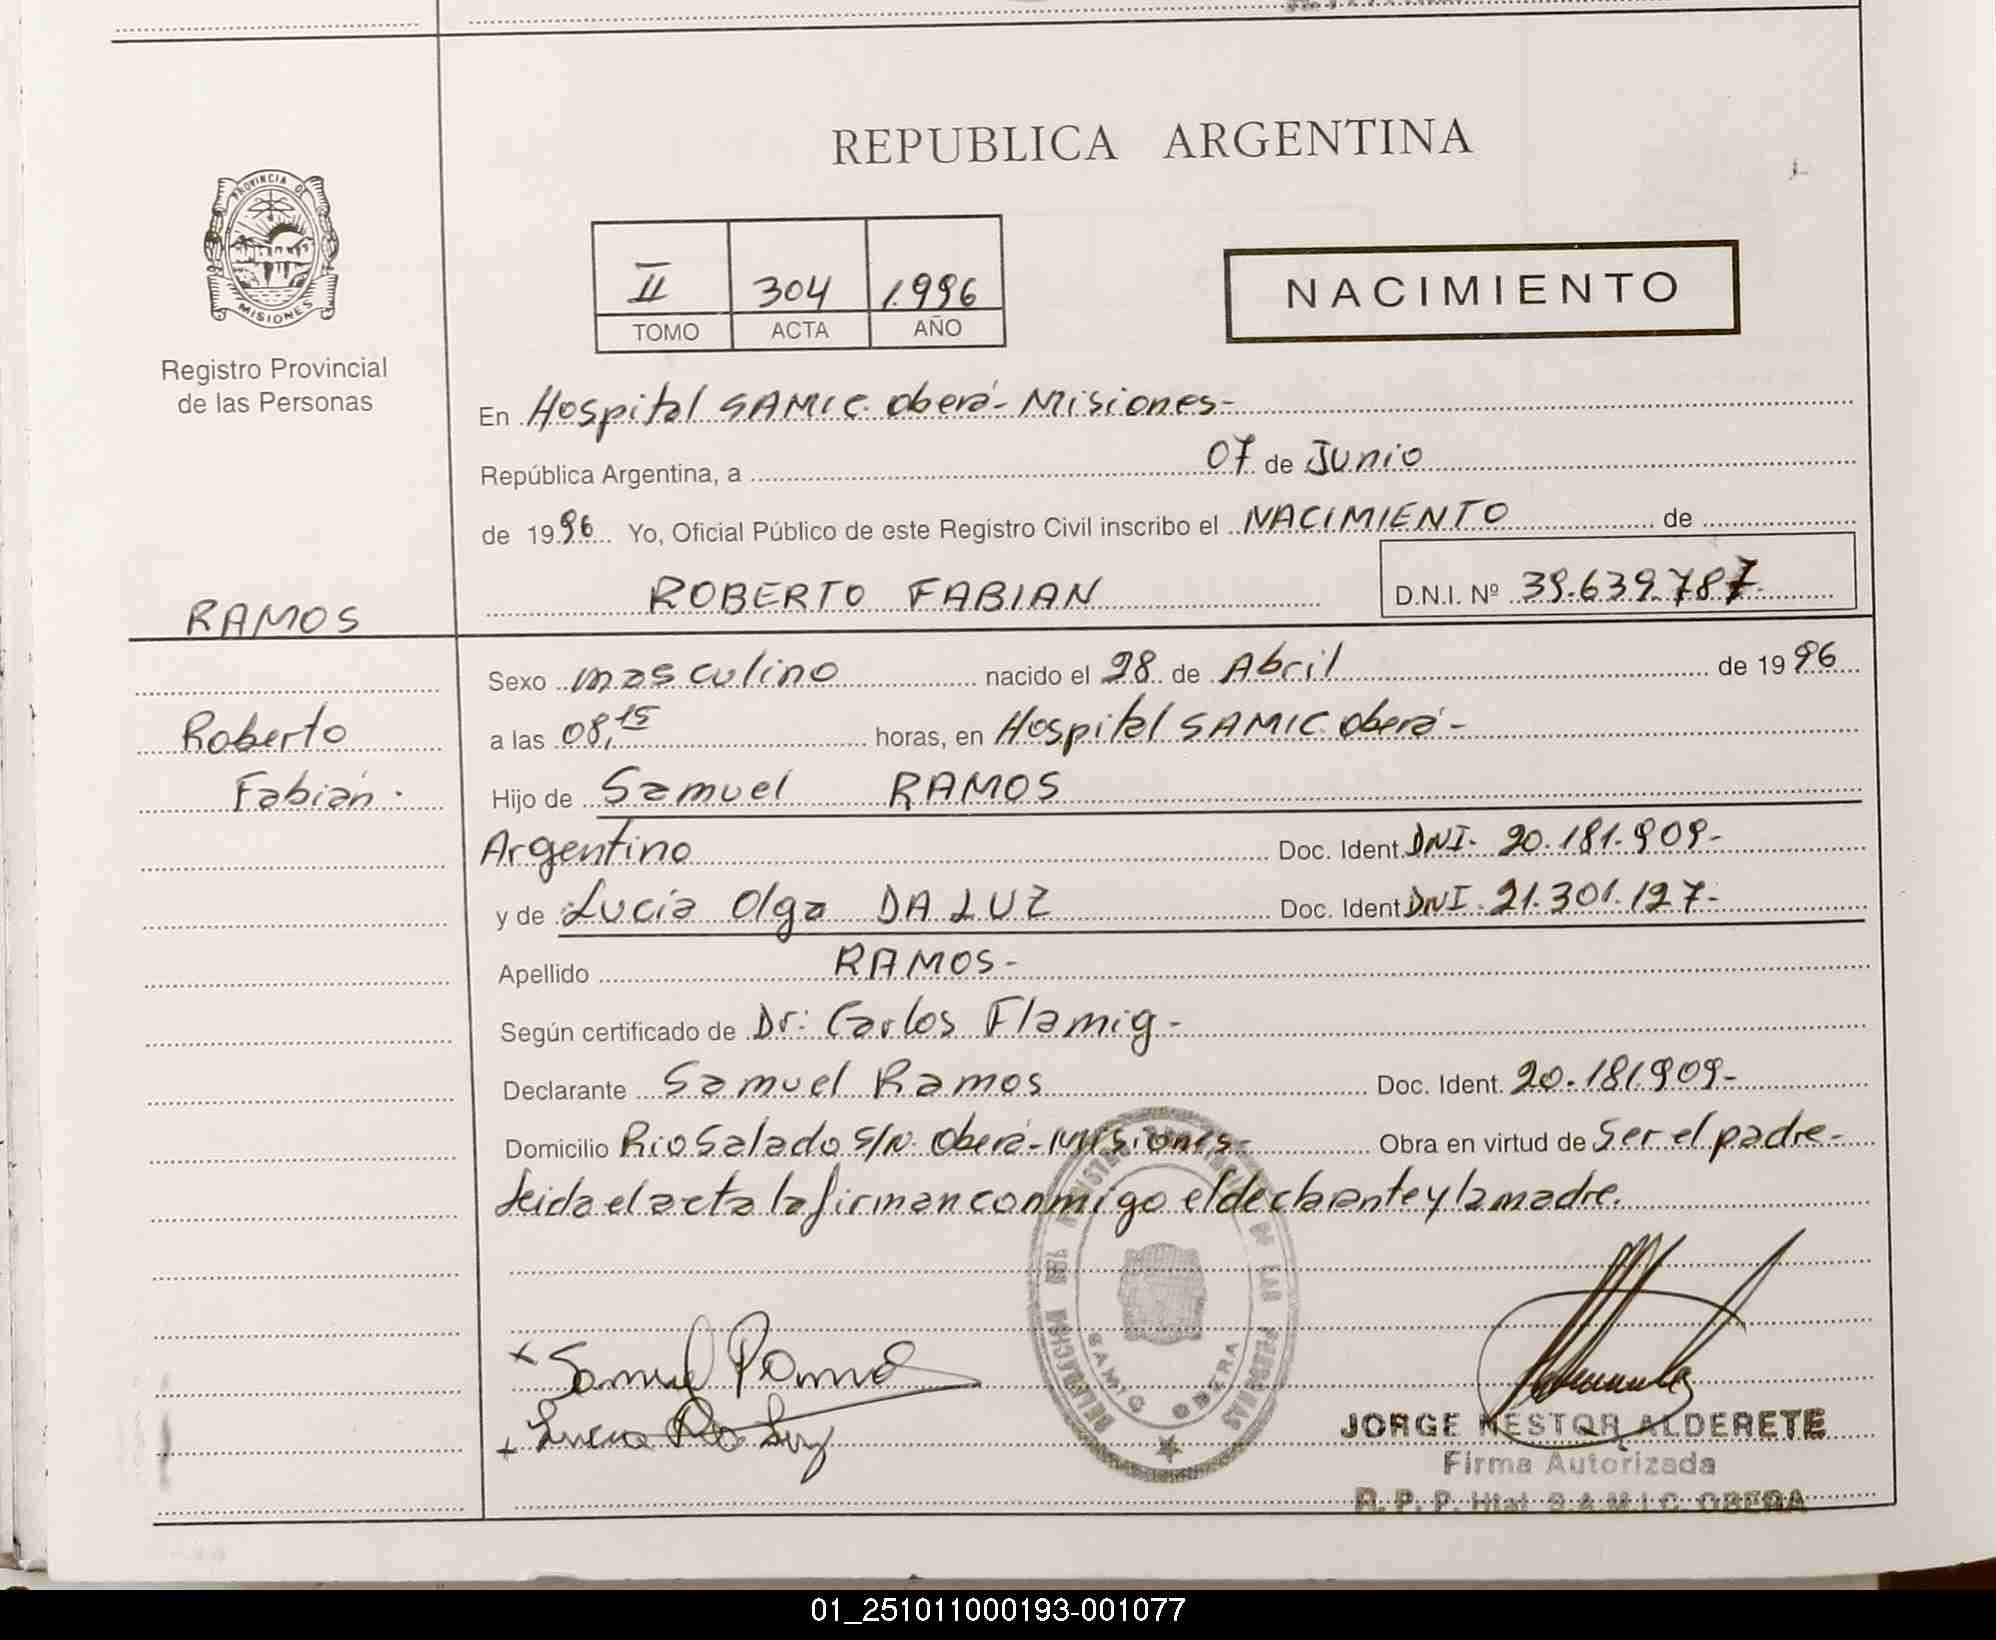 REPUBLICA ARGENTINA
PROVINCIA DE MISIONES
Registro Provincial
de las Personas
II 304 1.996
TOMO ACTA AÑO
NACIMIENTO
En Hospital SAMIC. Oberá- Misiones-
República Argentina, a 07 de Junio
de 1996 Yo, Oficial Público de este Registro Civil inscribo el NACIMIENTO de
ROBERTO FABIAN D.N.I. Nº 39.639.787
RAMOS
Roberto
Fabián.
Sexo masculino nacido el 28 de Abril de 1996
a las 08,15 horas, en Hospital SAMIC. Oberá-
Hijo de Samuel RAMOS
Argentino Doc. Ident. DNI- 20.181.909-
y de Lucía Olga DA LUZ Doc. Ident DNI. 21.301.127-
Apellido RAMOS-
Según certificado de Dr: Carlos Flamig-
Declarante Samuel Ramos Doc. Ident. 20.181.909-
Domicilio Rio Salado S/N. Oberá-Misiones- Obra en virtud de Ser el padre-
Leida el acta la firman conmigo el declarante y la madre.
DELEGACION DEL REGISTRO PROVINCIAL DE LAS PERSONAS
SAMIC OBERA
x Samuel Ramos
x Lucia Da Luz
JORGE NESTOR ALDERETE
Firma Autorizada
R. P. P. Htal S.A.M.I.C. OBERA
01_251011000193-001077